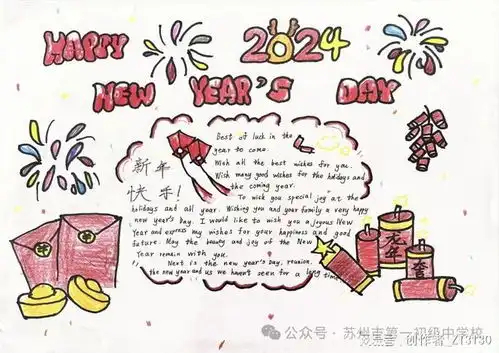 HAPPY 2024
NEW YEAR'S DAY
新年
快乐!
Best of luck in the
year to come.
Wish all the best wishes for you.
Wish many good wishes for the holidays and
the coming year.
To wish you special joy at the
holidays and all year. Wishing you and your family a very happy
new year's day. I would like to wish you a joyous New
Year and express my wishes for your happiness and good
future. May the beauty and joy of the New
Year remain with you.
Next is the new year's day, reunion,
the new year and us we haven't seen for a long time.
龙年
公众号·苏州市第一初级中学校